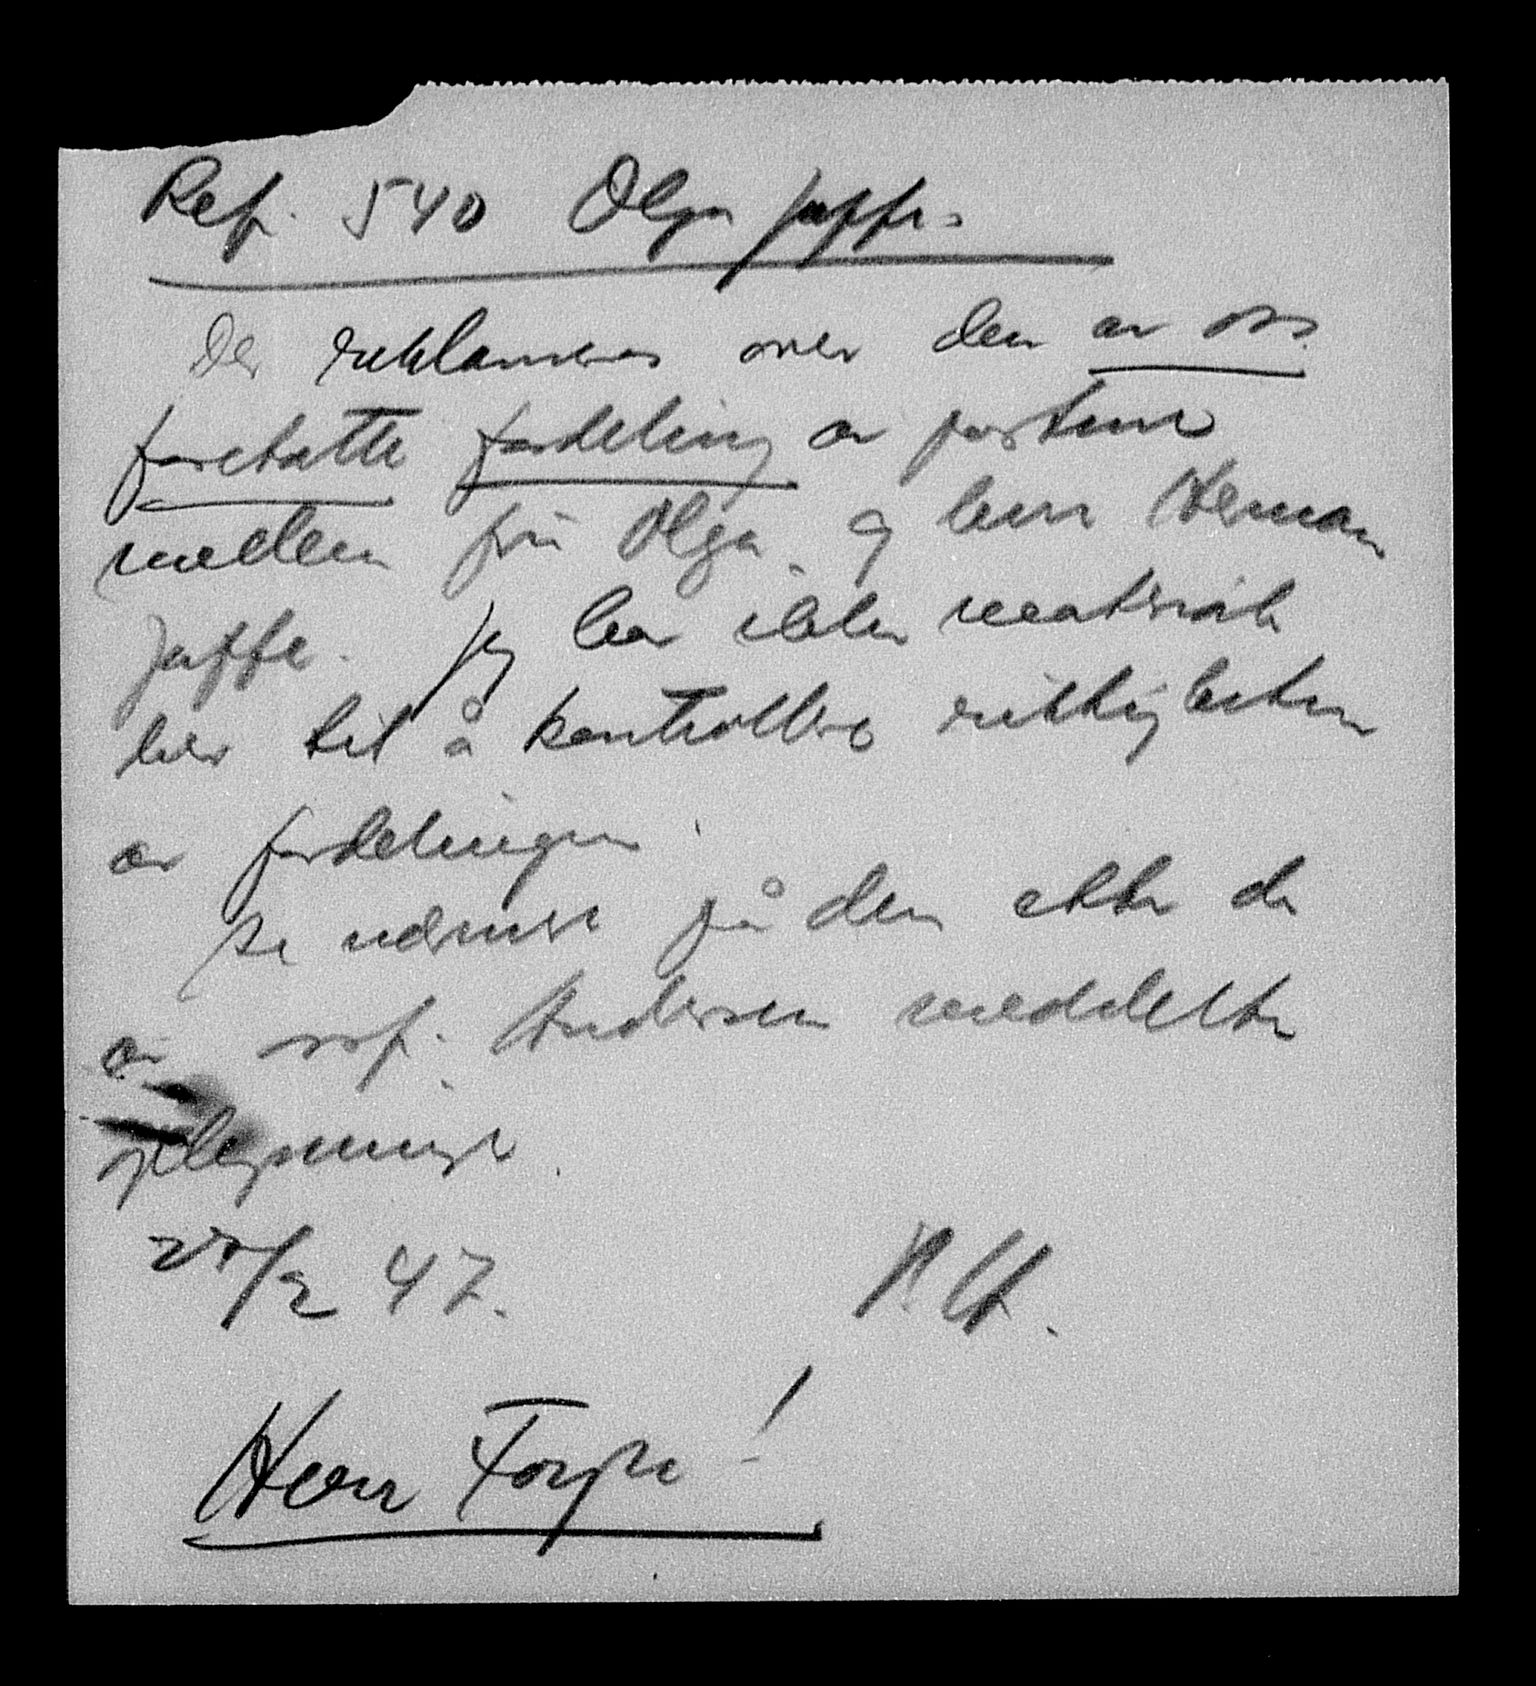 Ref. 540 Olga Jaffe.
Det reklameres over den av oss
foretatte fordeling av postene
mellem fru Olga og herr Herman
Jaffe. Jeg har ikke materiale
her til å kontrollere riktigheten
av fordelingen.
Se nærmere på den etter de
av Andersen meddelte
oplysninger.
/2 47.
Herr Torp!